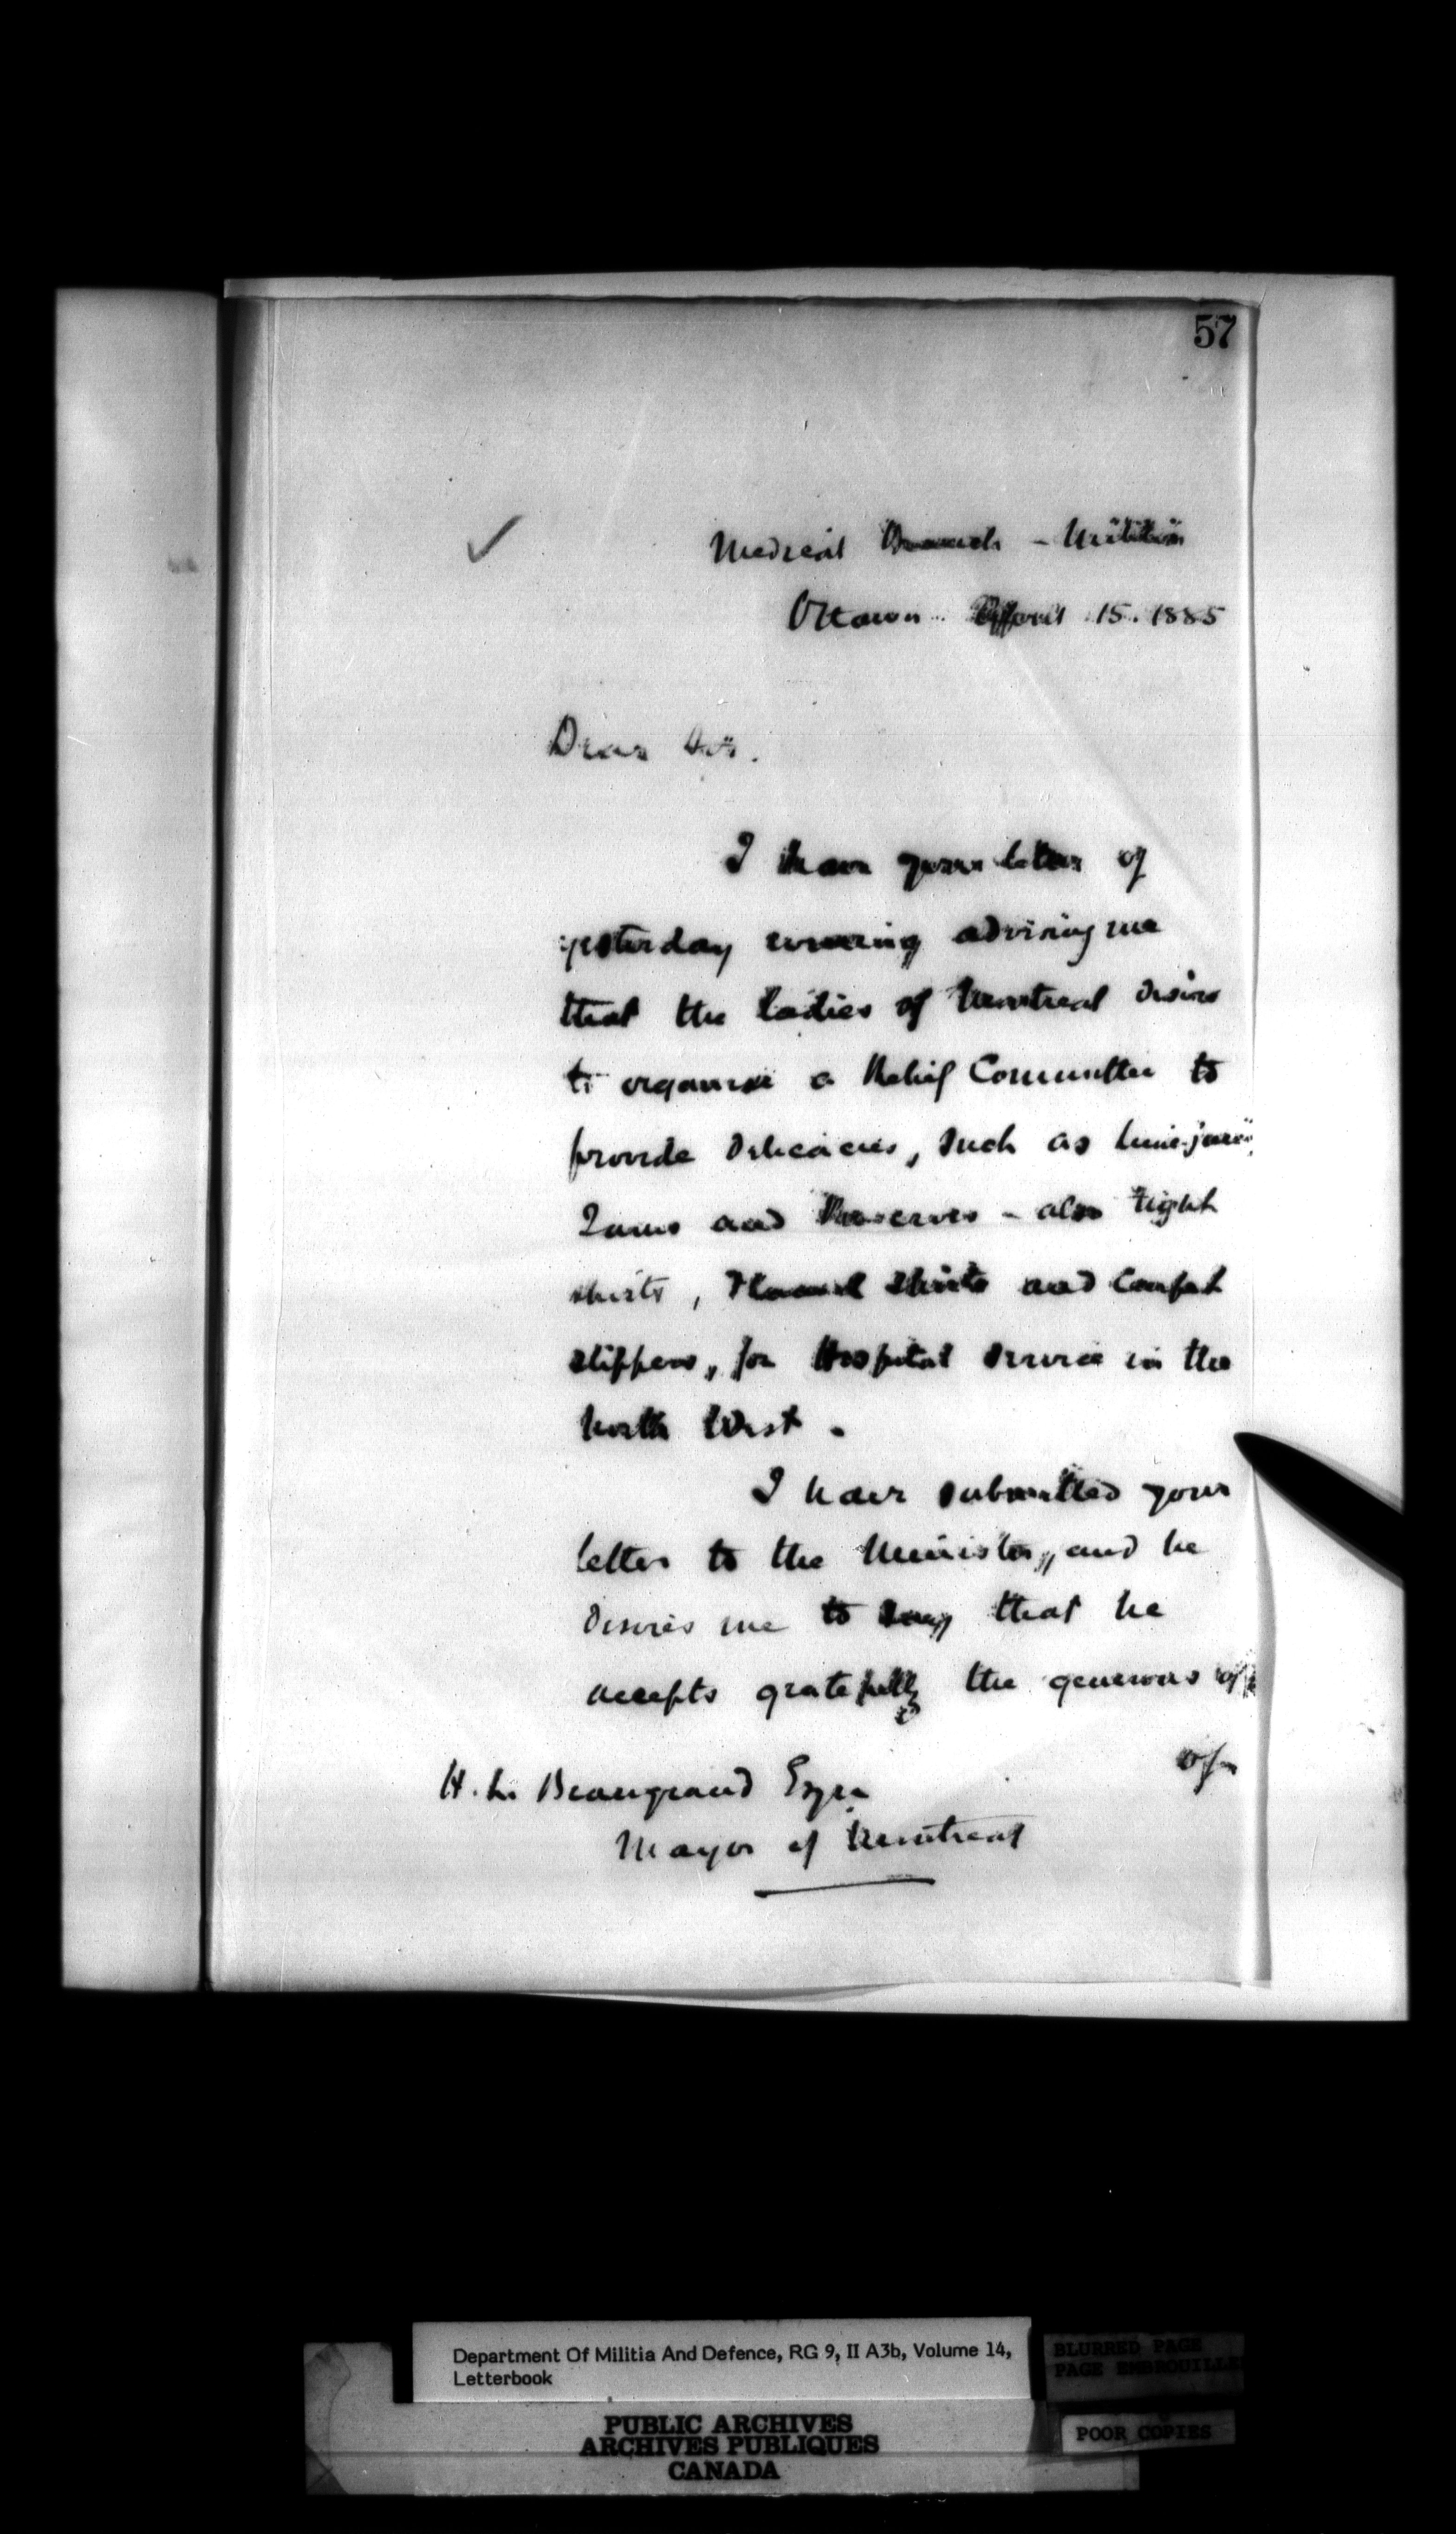 57
Medical Branch - Militia
Ottawa April 15. 1885
Dear Sir.
I have your letter of
yesterday evening advising me
that the Ladies of Montreal desire
to organise a Relief Committee to
provide delicacies, such as lime-juice,
Jams and Preserves - also night
shirts, Flannel shirts and Carpet
slippers, for Hospital service in the
North West.
I have submitted your
letter to the Minister, and he
desires me to say that he
accepts gratefully the generous
of
H. Beaugrand Esqre
Mayor of Montreal
Department Of Militia And Defence, RG 9, II A3b, Volume 14,
Letterbook
BLURRED PAGE
PAGE EMBROUILLE
POOR COPIES
PUBLIC ARCHIVES
ARCHIVES PUBLIQUES
CANADA